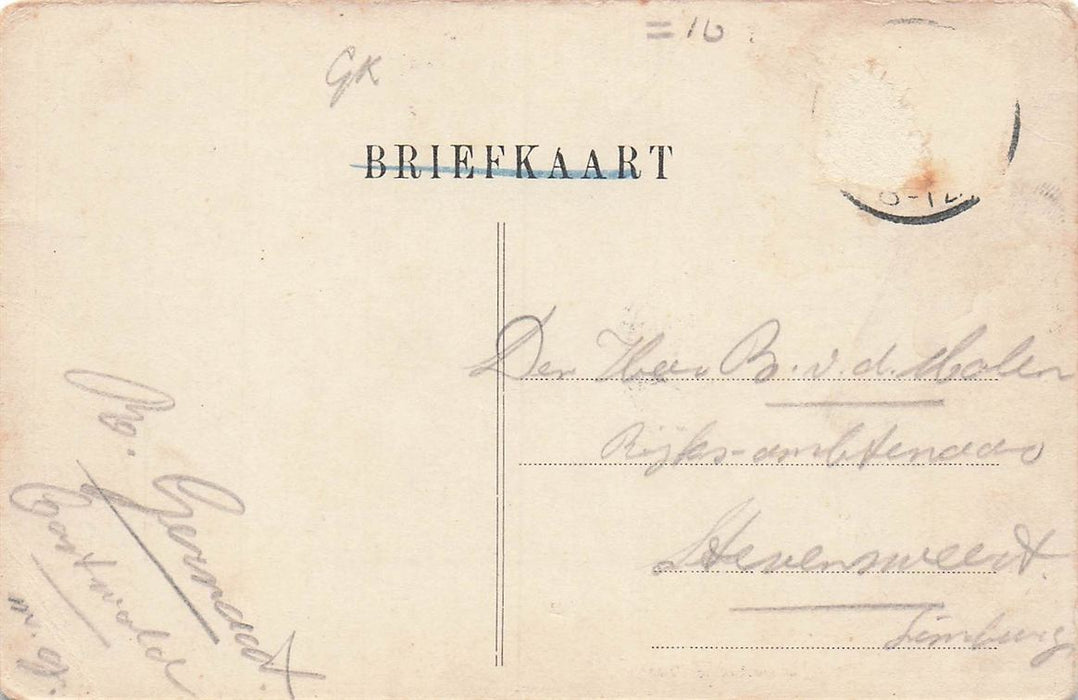 = 10
GK
BRIEFKAART
8-12
Den Heer B. v. d. Molen
Rijks-ambtenaar
Stevensweert
Limburg
Gernaat
Oostwold